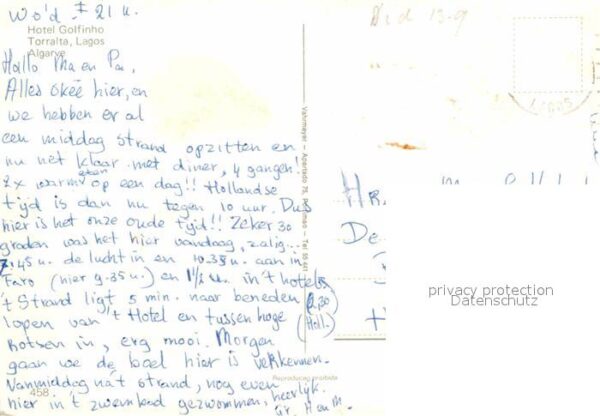 wo'd ± 21 u.
Hotel Golfinho
Torralta, Lagos
Algarve
Hallo Ma en Pa,
Alles okéé hier, en
we hebben er al
een middag strand opzitten en
nu net klaar met diner, 4 gangen!
2x warm eten op een dag!! Hollandse
tijd is dan nu tegen 10 uur. Dus
hier is het onze oude tijd!! Zeker 30
graden was het hier vandaag, zalig...
7.45 u. de lucht in en 10.35 u. aan in
Faro (hier 9.35 u.) en 1½ u. in 't hotel
't Strand ligt 5 min. naar beneden
lopen van 't Hotel en tussen hoge (Holl.)
Rotsen in, erg mooi. Morgen
gaan we de boel hier is verkennen.
Vanmiddag ná 't strand, nog even
hier in 't zwembad gezwommen, heerlijk.
gr. H en M.
458
Reproducao proibida
Did 13-9
LAGOS
De
privacy protection
Datenschutz